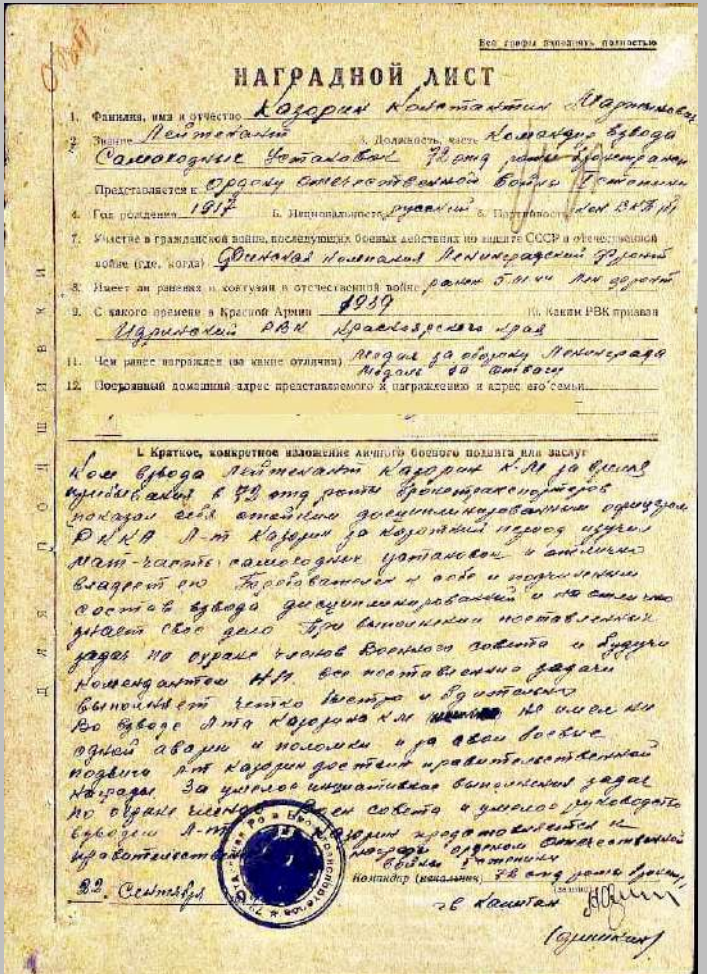 Все графы заполнять полностью
НАГРАДНОЙ ЛИСТ
1. Фамилия, имя и отчество Казорин Константин
2. Звание Лейтенант 3. Должность, часть Командир взвода
Самоходных Установок 72 отд роты бронетранс
Представляется к Ордену Отечественной войны степени
4. Год рождения 1917 5. Национальность русский 6. Партийность кан ВКП(б)
7. Участие в гражданской войне, последующих боевых действиях по защите СССР и отечественной
войне (где, когда) Финская кампания Ленинградский фронт
8. Имеет ли ранения и контузии в отечественной войне ранен 5.01.44 Лен фронт
9. С какого времени в Красной Армии 1939 10. Каким РВК призван
Идринский РВК Красноярского края
11. Чем ранее награжден (за какие отличия) Медаль за оборону Ленинграда
Медаль за отвагу
12. Постоянный домашний адрес представляемого к награждению и адрес его семьи
ДЛЯ ПОДШИВКИ
I. Краткое, конкретное изложение личного боевого подвига или заслуг
Ком взвода Лейтенант Казорин К.М за время
пребывания в 72 отд роты бронетранспортеров
показал себя стойким дисциплинированным офицером
РККА Л-т Казорин за короткий период изучил
мат-часть самоходных установок и отлично
владеет ею Требователен к себе и подчиненым
состав взвода дисциплинированный и на отлично
знает свое дело При выполнении поставленных
задач по охране членов Военного совета и будучи
комендантом Н.П. все поставленные задачи
выполняет четко быстро и бдительно
Во взводе Л-та Казорина К М не имел ни
одной аварии и поломки и за свои боевые
подвиги л-т Казорин достоин правительственной
награды. За умелое инициативное выполнения задач
по охране членов Воен совета и умелое руководство
взводом Л-т Казорин представляется к
правительствен награды орденом Отечественной
войны степени
Командир (начальник) 72 отд роты бронетр
22 Сентября
(звание)
гв Капитан